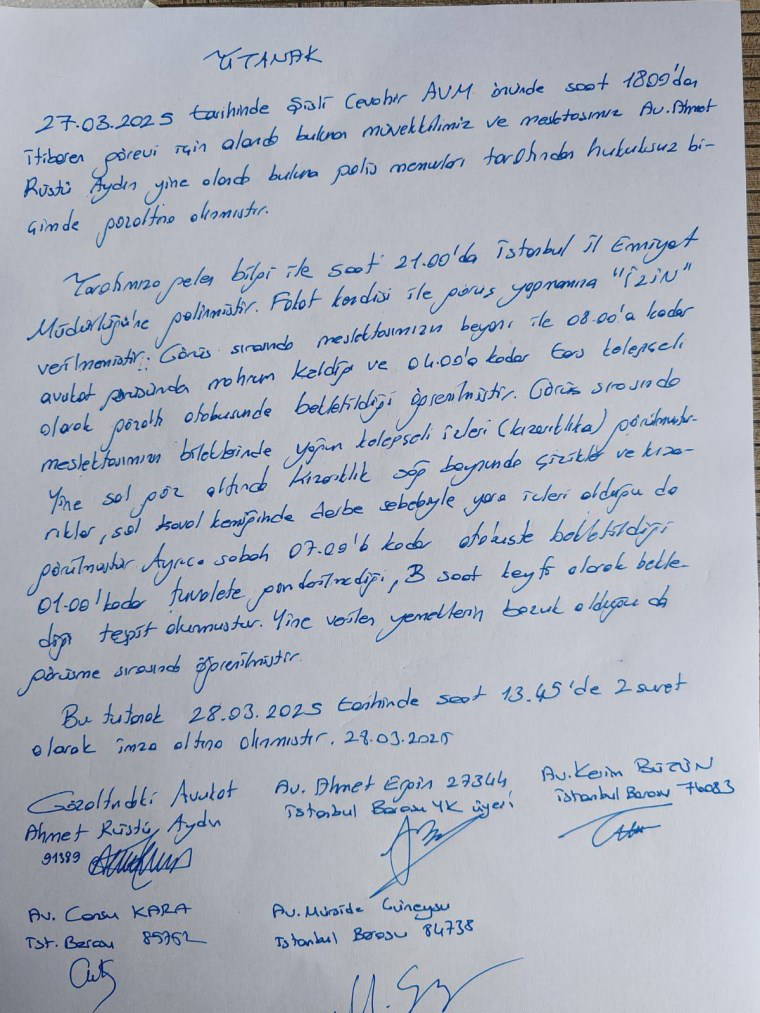 TUTANAK
27.03.2025 tarihinde Şişli Cevahir AVM önünde saat 18.00'dan
itibaren görevi için alanda bulunan müvekkilimiz ve meslektaşımız Av. Ahmet
Rüştü Aydın yine alanda bulunan polis memurları tarafından hukuksuz bi-
çimde gözaltına alınmıştır.
Tarafımıza gelen bilgi ile saat 21.00'da İstanbul İl Emniyet
Müdürlüğü'ne gelinmiştir. Fakat kendisi ile görüş yapmamıza "İZİN"
verilmemiştir. Görüş sırasında meslektaşımızın beyanı ile 08.00'a kadar
avukat görüşünden mahrum kaldığı ve 04.00'a kadar ters kelepçeli
olarak gözaltı otobüsünde bekletildiği öğrenilmiştir. Görüş sırasında
meslektaşımızın bileklerinde yoğun kelepçeli izleri (kızarıklık) görülmüştür.
Yine sol göz altında kızarıklık sağ boynunda çizikler ve kıza-
rıklar, sol kaval kemiğinde darbe sebebiyle yara izleri olduğu da
görülmüştür. Ayrıca sabah 07.00'a kadar otobüste bekletildiği
01.00'kadar tuvalete gönderilmediği, 3 saat keyfi olarak bekle-
diği tespit olunmuştur. Yine verilen yemeklerin bozuk olduğu da
görüşme sırasında öğrenilmiştir.
Bu tutanak 28.03.2025 tarihinde saat 13.45'de 2 suret
olarak imza altına alınmıştır. 28.03.2025
Gözaltındaki Avukat
Ahmet Rüştü Aydın
91389
Av. Ahmet Ergin 27344
İstanbul Barosu YK üyesi
Av. Kerim BÜTÜN
İstanbul Barosu 76083
Av. Cansu KARA
İst. Barosu 85752
Av. Mürşide Güneysu
İstanbul Barosu 84738